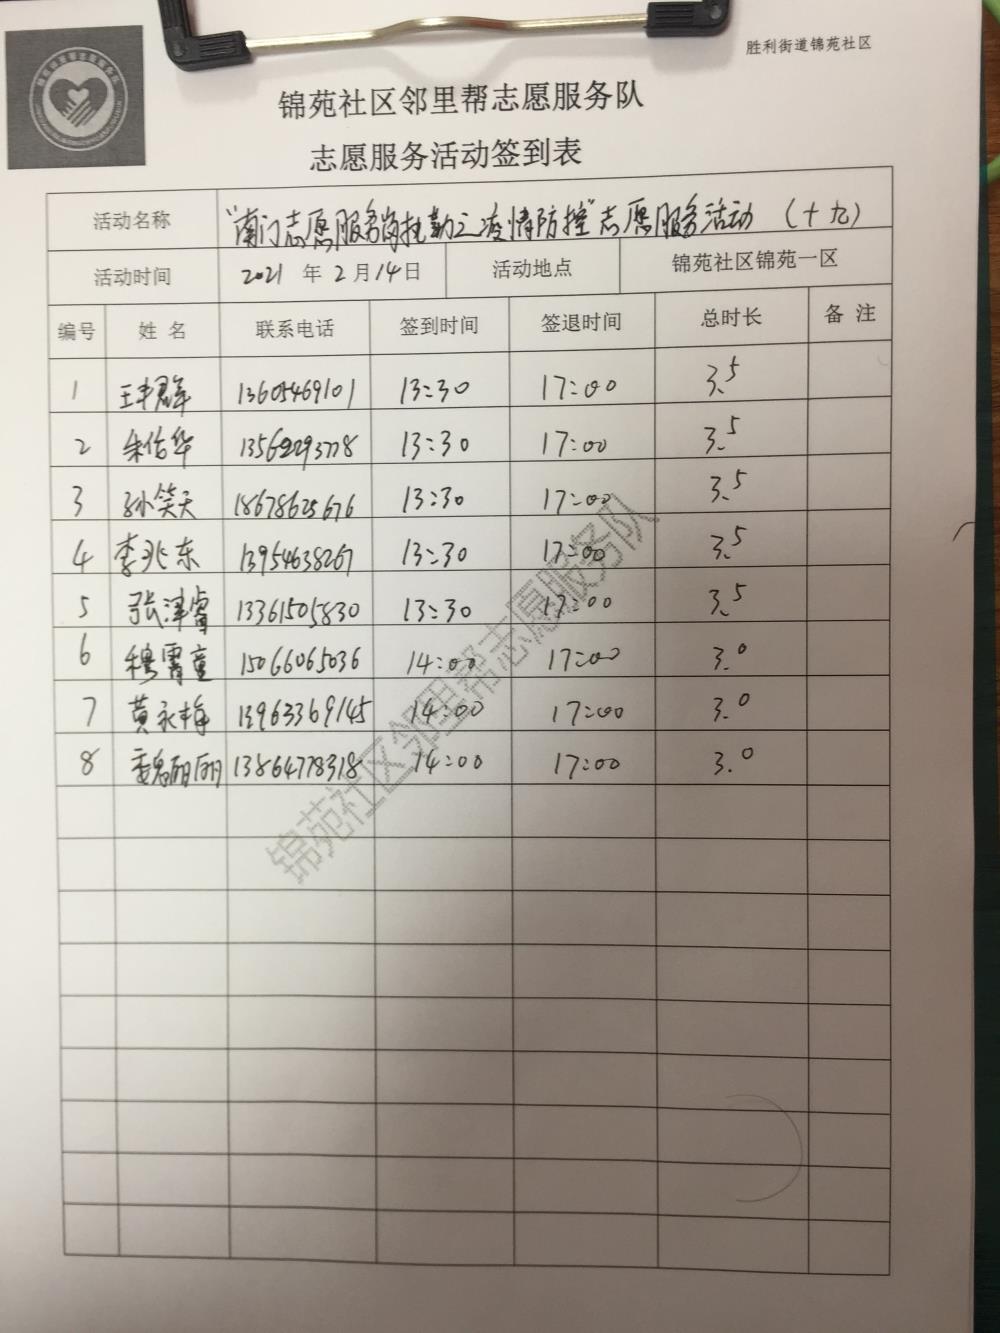 胜利街道锦苑社区
锦苑社区邻里帮志愿服务队
志愿服务活动签到表
活动名称 "南门志愿服务岗执勤之疫情防控"志愿服务活动（十九）
活动时间 2021 年 2 月 14 日 活动地点 锦苑社区锦苑一区
编号 姓 名 联系电话 签到时间 签退时间 总时长 备 注
1 13605469101 13:30 17:00 3.5
2 朱佑华 13:30 17:00 3.5
3 孙笑天 18678625676 13:30 17:00 3.5
4 李兆东 13954638267 13:30 17:00 3.5
5 张津睿 13361505830 13:30 17:00 3.5
6 穆霄童 15066065036 14:00 17:00 3.0
7 黄永梅 13963369145 14:00 17:00 3.0
8 13864778318 14:00 17:00 3.0
锦苑社区邻里帮志愿服务队